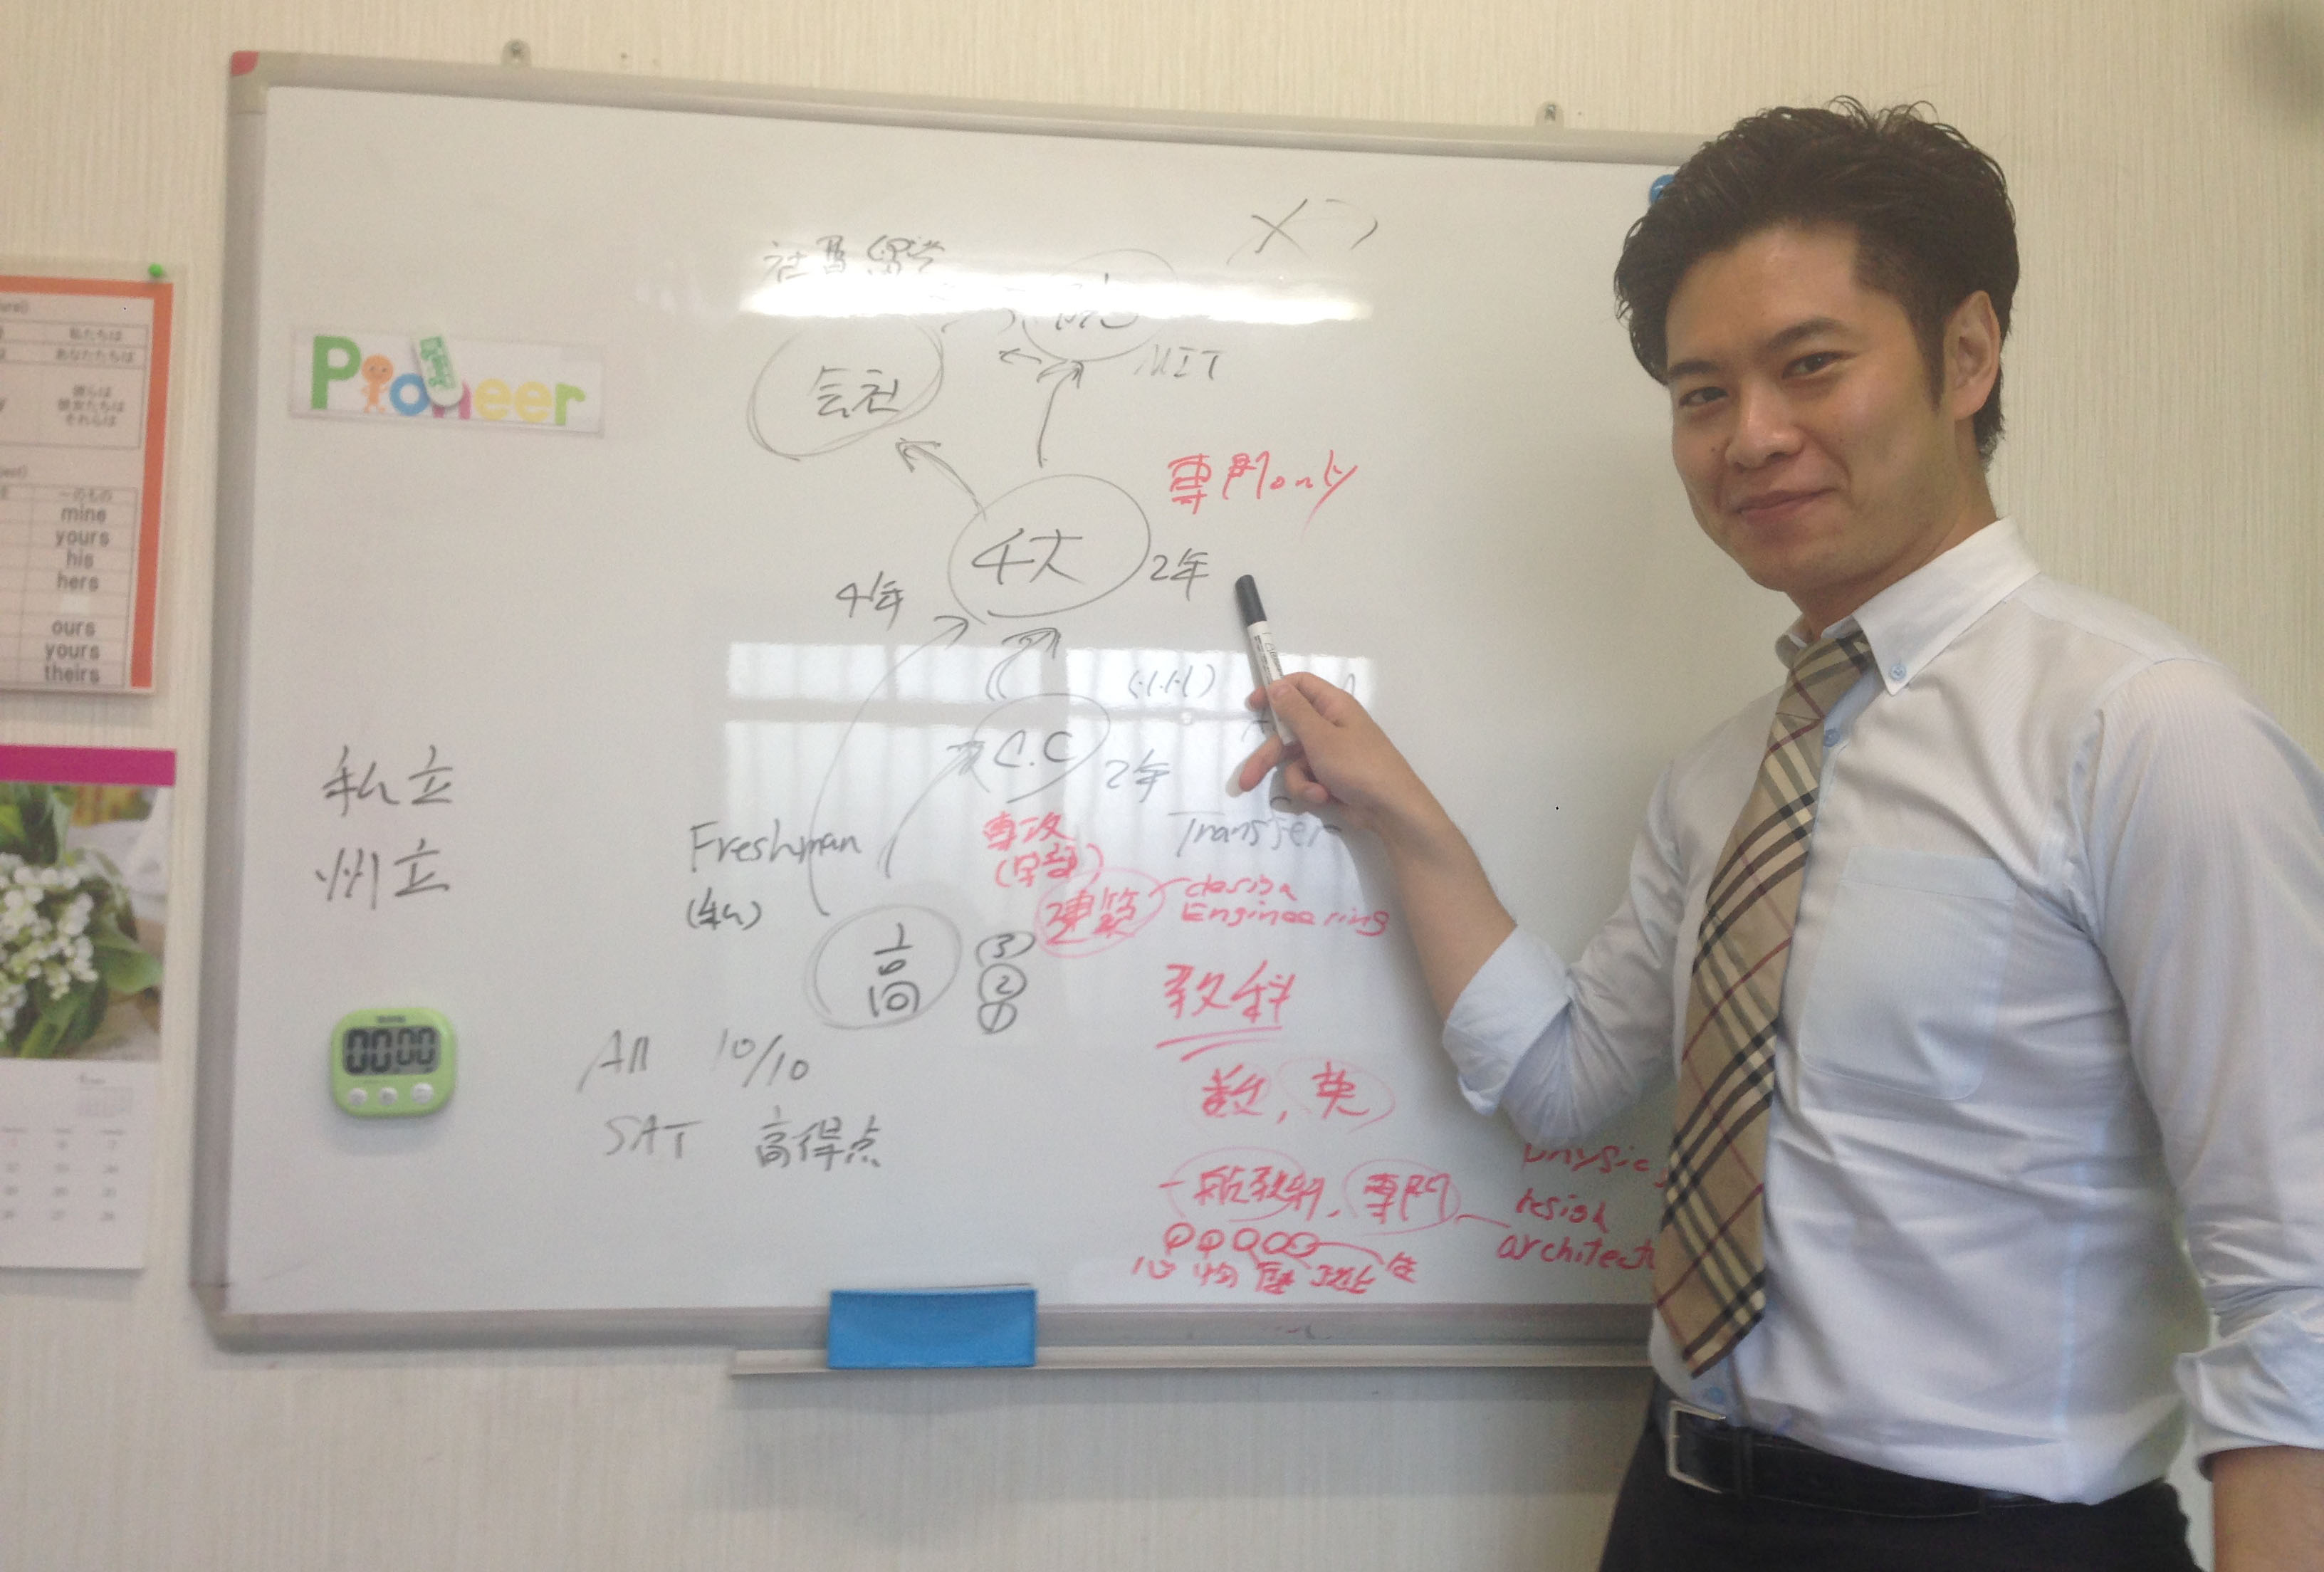 社費留学
院
MIT
会社
Pioneer
専門only
4大
2年
4年
C.C
2年
私立
州立
Freshman
専攻
(学部)
Transfer
建築
design
Engineering
(私)
高
③
②
①
教科
All 10/10
SAT 高得点
数, 英
一般教科, 専門
design
architect
心 物 歴
00:00
私たちは
あなたたちは
彼らは
彼女たちは
それらは
~のもの
mine
yours
his
hers
ours
yours
theirs